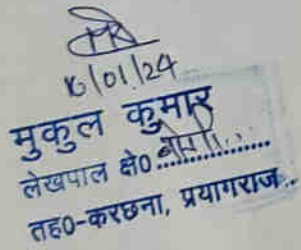 16/01/24
मुकुल कुमार
लेखपाल क्षे0 ................
तह0-करछना, प्रयागराज..